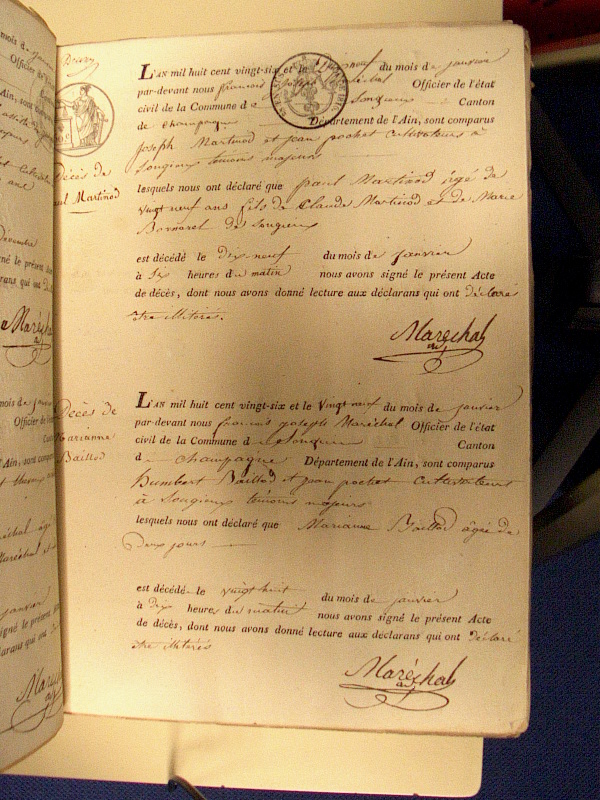 Décès de
Paul Martinod
L'AN mil huit cent vingt-six et le du mois de janvier
par-devant nous françois joseph Maréchal Officier de l'état
civil de la Commune de Songieux Canton
de champagne Département de l'Ain, sont comparus
joseph Martinod et jean pochet cultivateurs à
Songieux temoins majeurs
lesquels nous ont déclaré que paul Martinod âgé de
vingt neuf ans fils de Claude Martinod et de Marie
de Songieux
est décédé le dix-neuf du mois de janvier
à Six heures du matin nous avons signé le présent Acte
de décès, dont nous avons donné lecture aux déclarans qui ont déclaré
etre illiterés.
Maréchal
Décès de
Marianne
Baillod
L'AN mil huit cent vingt-six et le Vingt neuf du mois de janvier
par-devant nous françois joseph Maréchal Officier de l'état
civil de la Commune de Songieux Canton
de champagne Département de l'Ain, sont comparus
humbert Baillod et jean pochet Cultivateurs
à Songieux temoins majeurs
lesquels nous ont déclaré que Marianne Baillod âgée de
Deux jours
est décédé le vingt huit du mois de janvier
à dix heures du matin nous avons signé le présent Acte
de décès, dont nous avons donné lecture aux déclarans qui ont déclaré
etre illiterés
Maréchal